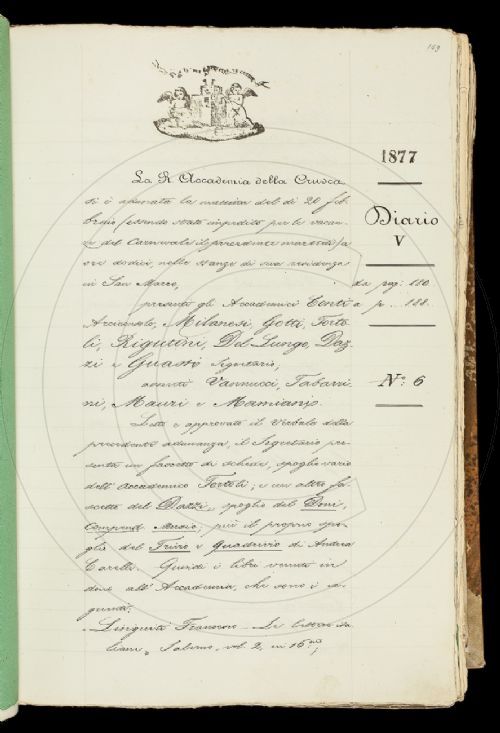 La R. Accademia della Crusca
si è adunata la mattina del dì 20 feb-
braio (essendo stato impedito per le vacan-
ze del Carnevale il precedente martedì) a
ore dodici, nelle stanze di sua residenza
in San Marco,
presenti gli Accademici Conti
Arciconsolo, Milanesi, Gotti, Torto-
li, Rigutini, Del Lungo, Daz-
zi e Guasti Segretario,
assenti Vannucci, Tabarri-
ni, Mauri e Mamiani.
Letto e approvato il Verbale della
precedente adunanza, il Segretario pre-
senta un fascetto di schede, spoglio vario
dell'Accademico Tortoli; e un altro fa-
scetto del Dazzi, spoglio del Doni,
Compend. più il proprio spo-
glio del Trivio e Quadrivio di Andrea
Corelli. Quindi i libri venuti in
dono all'Accademia, che sono i se-
guenti:
Linguiti Francesco – Le lettere ita-
liane, Salerno, vol. 2, in 16.mo;
169
1877
Diario
V
da pag. 180.
a p. 188.
N.° 6